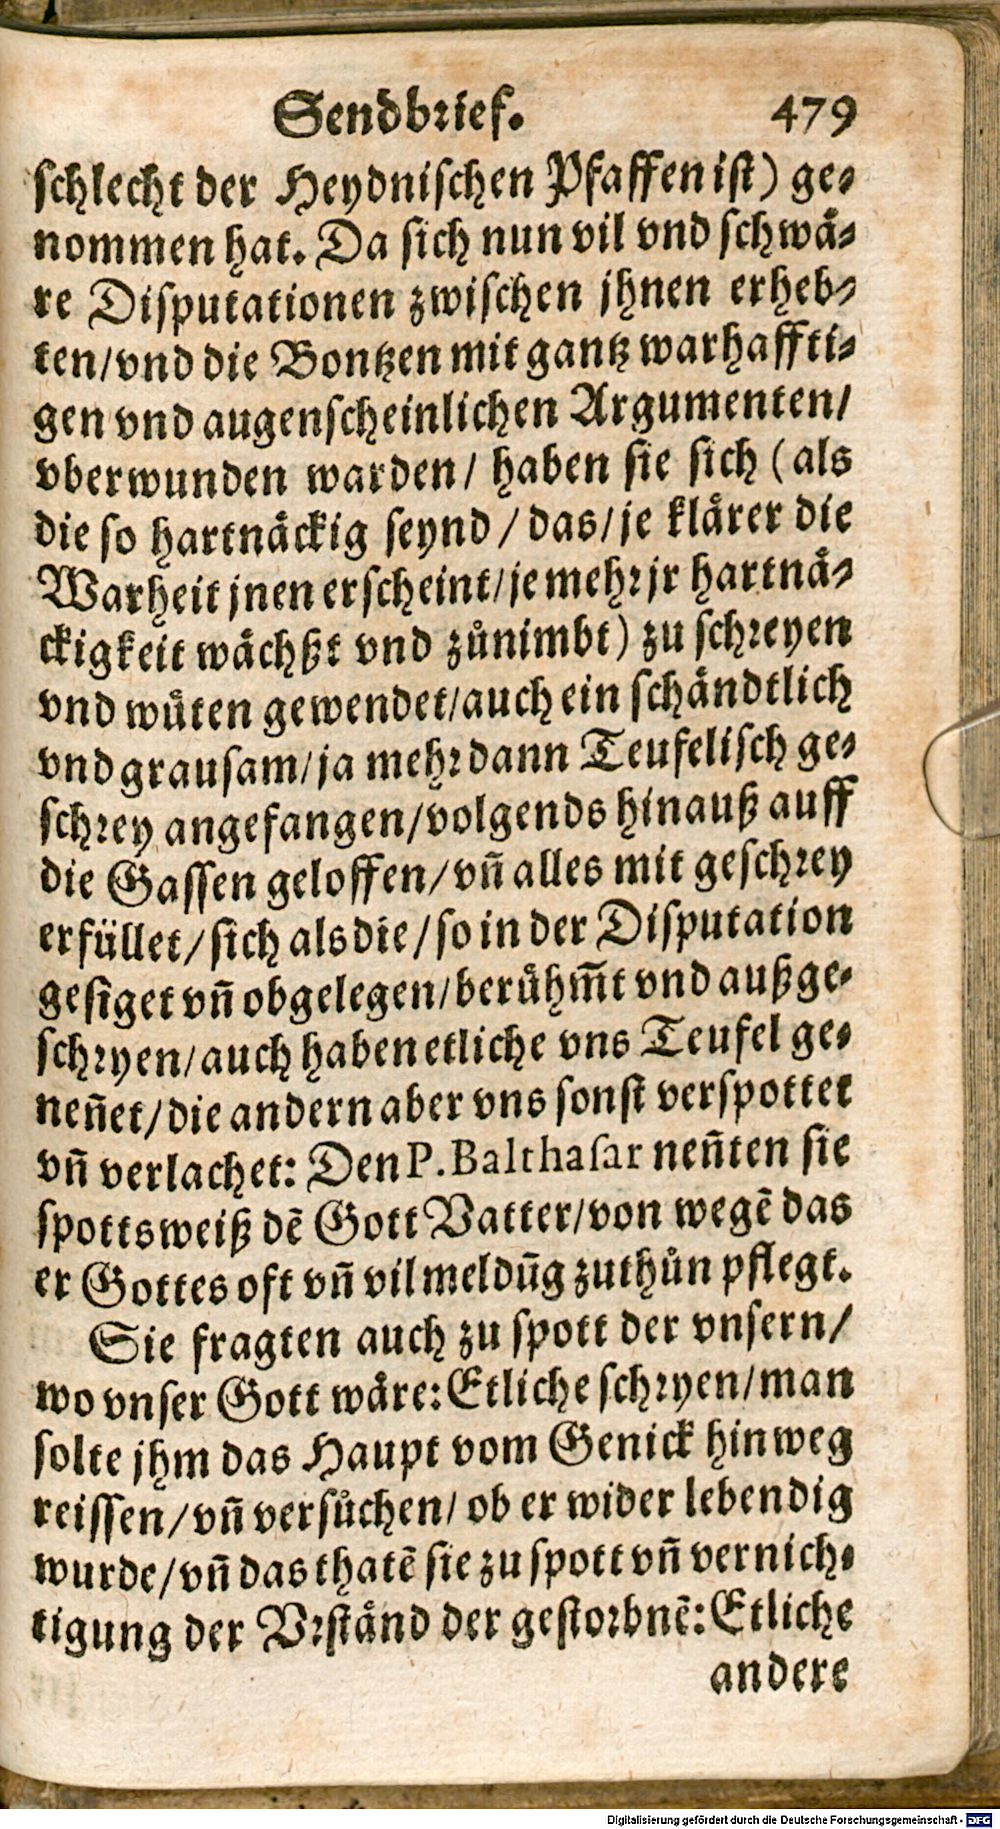 Sendbrief. 479
schlecht der Heydnischen Pfaffen ist) ge-
nommen hat. Da sich nun vil vnd schwä-
re Disputationen zwischen jhnen erheb-
ten/ vnd die Bontzen mit gantz warhaffti-
gen vnd augenscheinlichen Argumenten/
vberwunden warden/ haben sie sich (als
die so hartnäckig seynd/ das/ je klärer die
Warheit jnen erscheint/ je mehr jr hartnä-
ckigkeit wächßt vnd zůnimbt) zu schreyen
vnd wüten gewendet/ auch ein schändtlich
vnd grausam/ ja mehr dann Teufelisch ge-
schrey angefangen/ volgends hinauß auff
die Gassen geloffen/ vñ alles mit geschrey
erfüllet/ sich als die/ so in der Disputation
gesiget vñ obgelegen/ berühm̃t vnd außge-
schryen/ auch haben etliche vns Teufel ge-
neñet/ die andern aber vns sonst verspottet
vñ verlachet: Den P. Balthasar neñten sie
spottsweiß dẽ Gott Vatter/ von wegẽ das
er Gottes oft vñ vil meldũg zuthůn pflegt.
Sie fragten auch zu spott der vnsern/
wo vnser Gott wäre: Etliche schryen/ man
solte jhm das Haupt vom Genick hinweg
reissen/ vñ versůchen/ ob er wider lebendig
wurde/ vñ das thatẽ sie zu spott vñ vernich-
tigung der Vrständ der gestorbnẽ: Etliche
andere
Digitalisierung gefördert durch die Deutsche Forschungsgemeinschaft - DFG